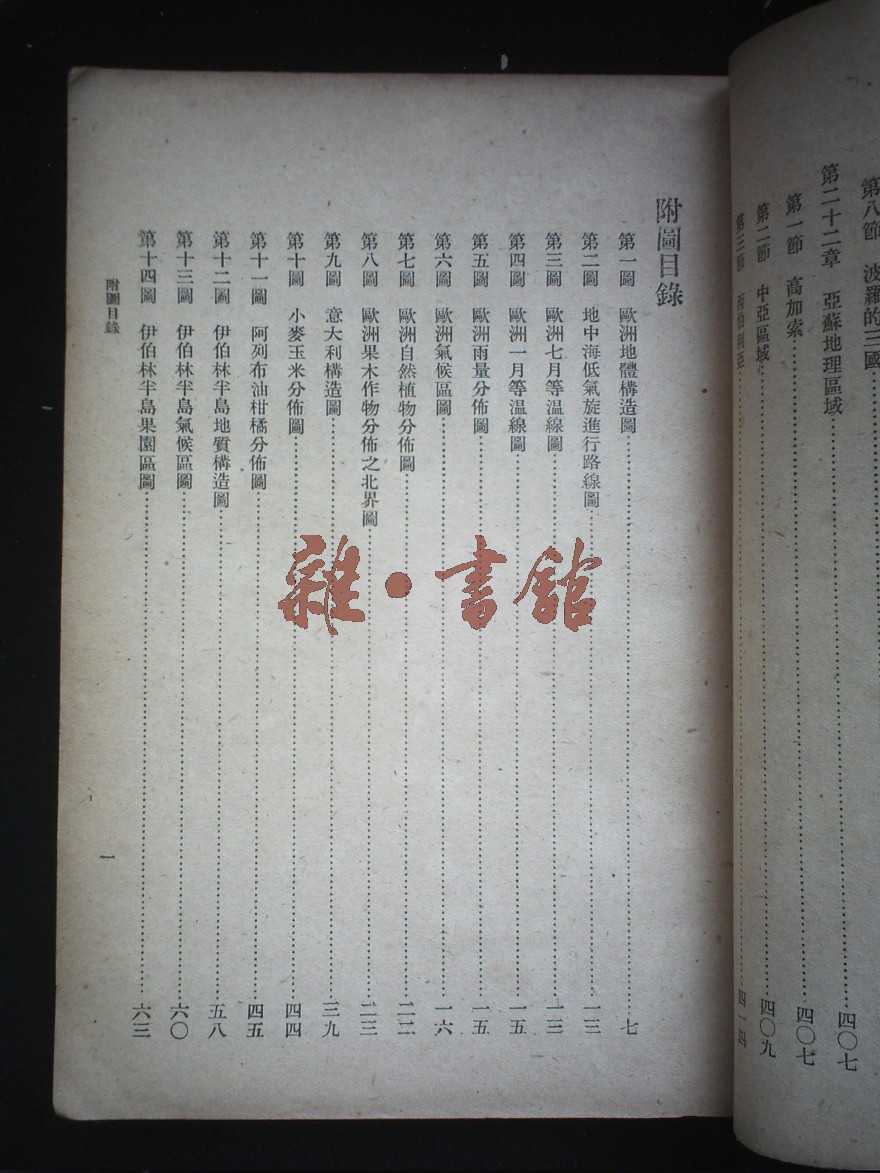 第八節 波羅的三國……四〇七
第二十二章 亞蘇地理區域……四〇七
第一節 高加索……四〇七
第二節 中亞區域……四〇九
第三節 西伯利亞……四一四
附圖目錄
第一圖 歐洲地體構造圖……七
第二圖 地中海低氣旋進行路線圖……一三
第三圖 歐洲七月等溫線圖……一三
第四圖 歐洲一月等溫線圖……一五
第五圖 歐洲雨量分佈圖……一五
第六圖 歐洲氣候區圖……一六
第七圖 歐洲自然植物分佈圖……二二
第八圖 歐洲果木作物分佈之北界圖……二三
第九圖 意大利構造圖……三九
第十圖 小麥玉米分佈圖……四四
第十一圖 阿列布油柑橘分佈圖……四五
第十二圖 伊伯林半島地質構造圖……五八
第十三圖 伊伯林半島氣候區圖……六〇
第十四圖 伊伯林半島果園區圖……六三
附圖目錄
一
雜·書館